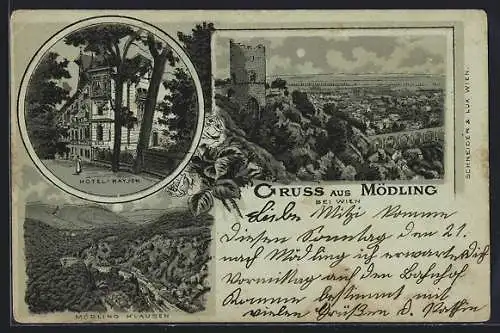 HOTEL RAYSER
SCHNEIDER & LUX WIEN.
GRUSS AUS MÖDLING
BEI WIEN
MÖDLING KLAUSEN
Liebe Mitzi komme
diesen Sonntag den 21.
nach Mödling ich erwarte Dich
Vormittag auf den Bahnhof
komme bestimmt mit
vielen Grüßen d.